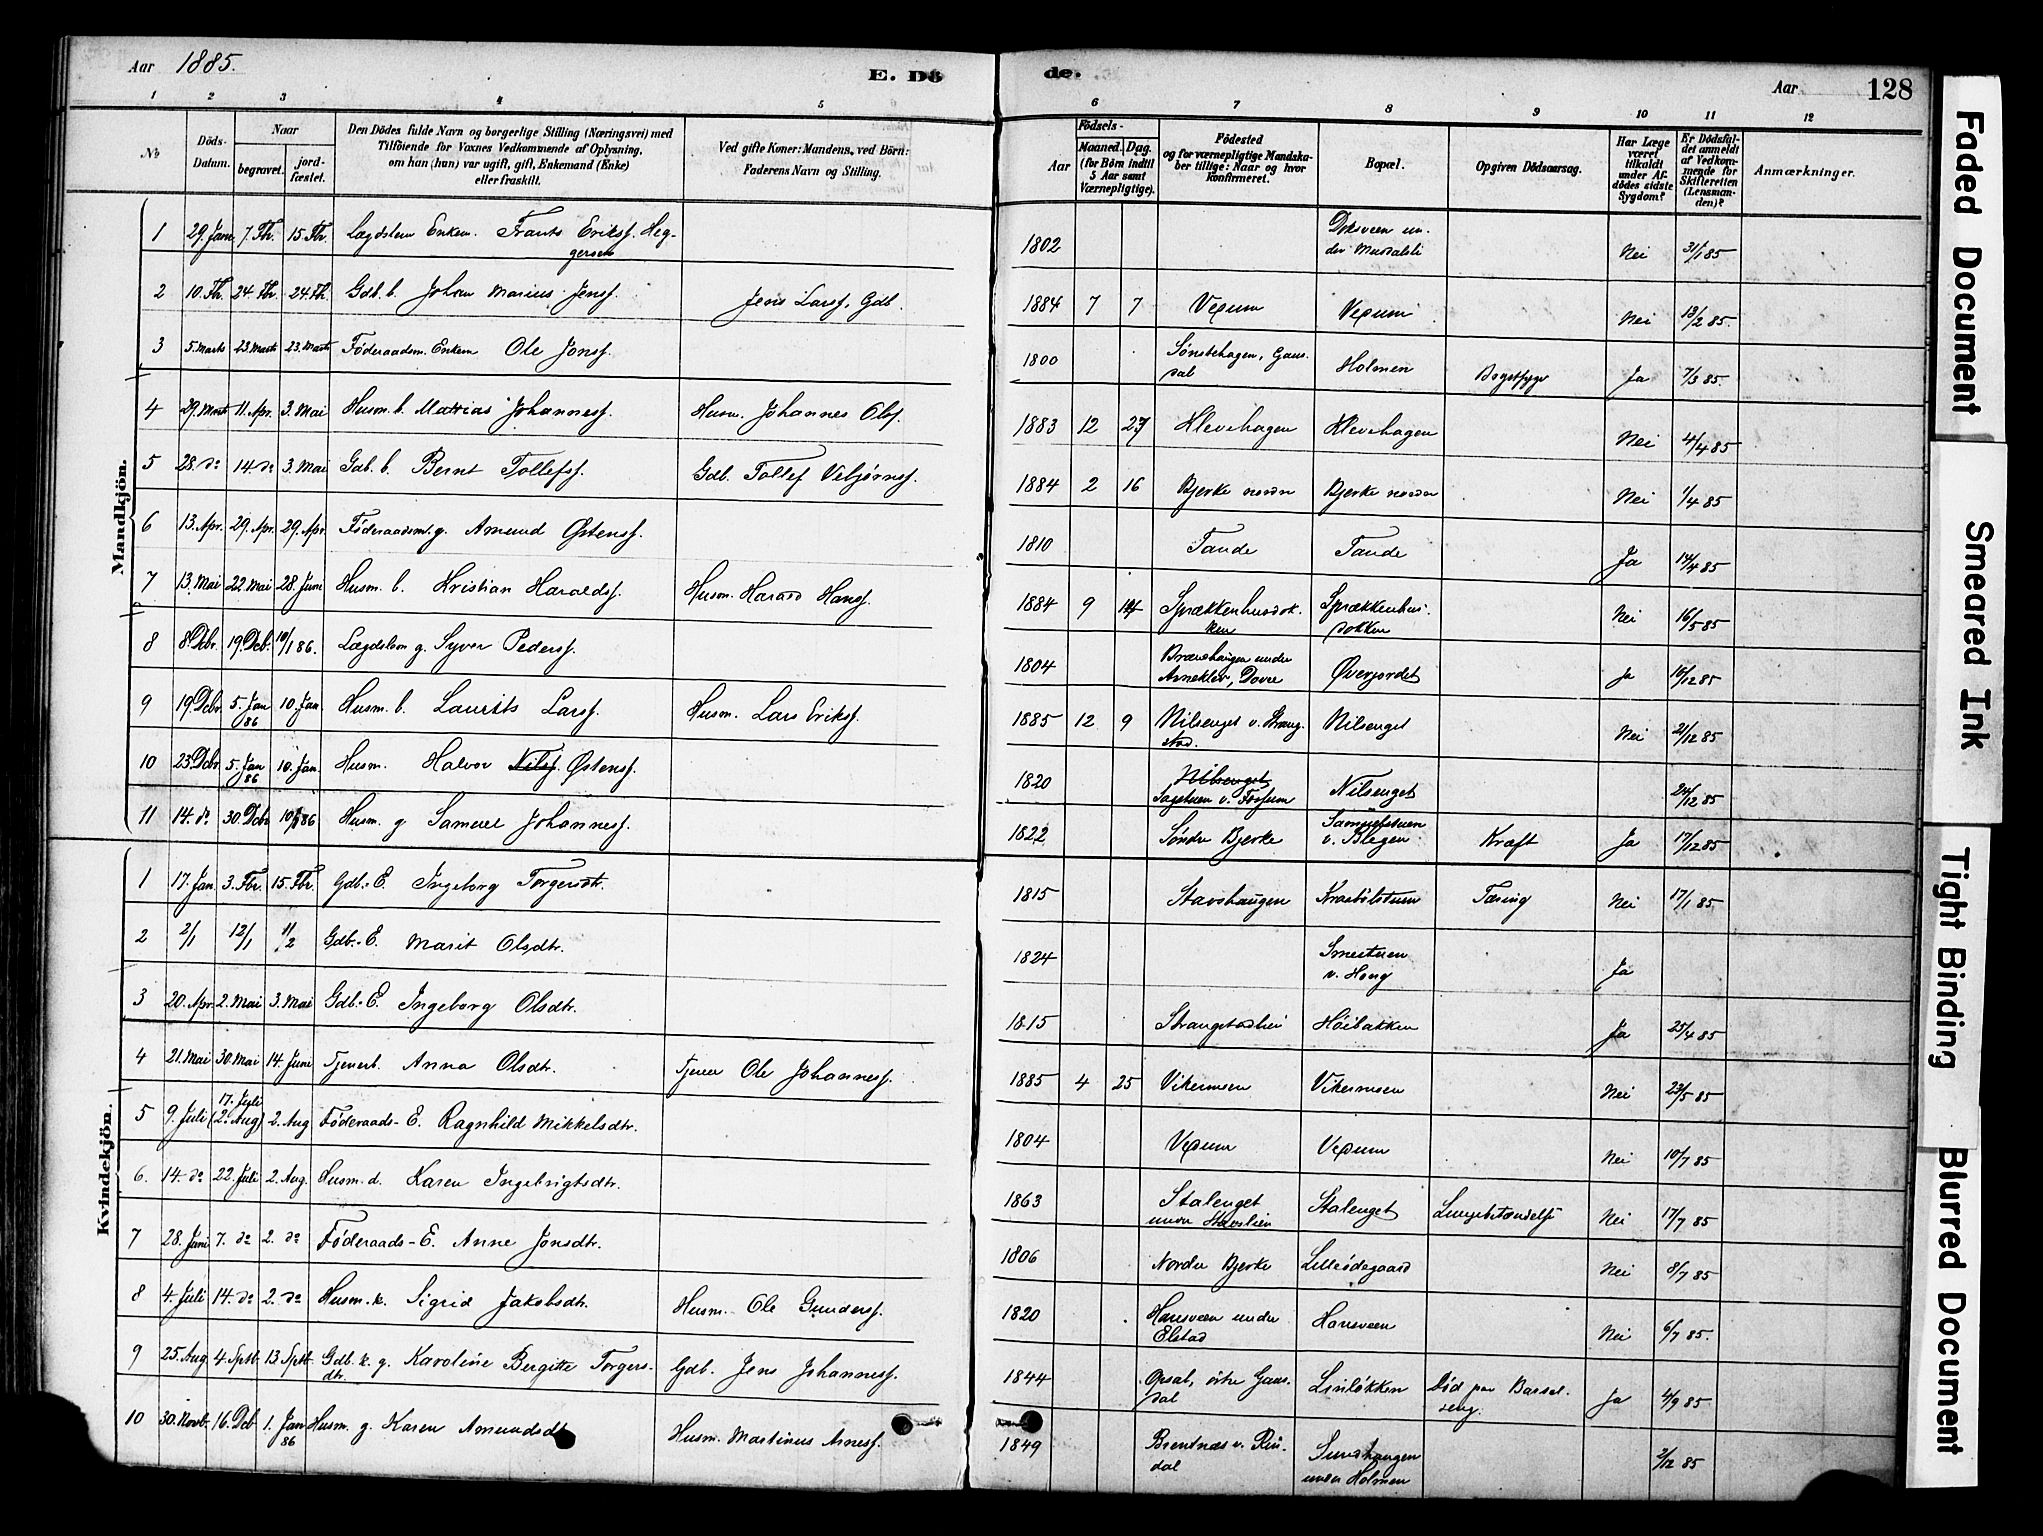 Aar 1885.
E. Dö
de.
Aar
128
1 2 3 4 5 6 7 8 9 10 11 12
No
Döds-Datum.
Naar
begravet.
jord-fæstet.
Den Dödes fulde Navn og borgerlige Stilling (Næringsvei) med
Tilföiende for Voxnes Vedkommende af Oplysning,
om han (hun) var ugift, gift, Enkemand (Enke)
eller fraskilt.
Ved gifte Koner: Mandens, ved Börn:
Faderens Navn og Stilling.
Födsels-
Aar
Maaned. Dag.
(for Børn indtil
5 Aar samt
Værnepligtige).
Födested
og for værnepligtige Mandska-
ber tillige: Naar og hvor
konfirmeret.
Bopæl.
Opgiven Dödsaarsag.
Har Læge
været
tilkaldt
under Af-
dödes sidste
Sygdom?
Er Dödsfal-
det anmeldt
af Vedkom-
mende for
Skifteretten
(Lensman-
den)?
Anmærkninger.
Mandkjön.
1 29. Jan 7. Fbr. 15. Fbr. Lægdslem Enkem. Frants Eriksf. Heg-
gersen 1802 under Nei 31/1 85
2 10. Fbr. 24. Fbr. 24. Fbr. Gdb. b. Johan Marius Jensf. Jens Larsf. Gdb. 1884 7 7 Vexum Vexum Nei 13/2 85.
3 5. Marts 23. Marts 23. Marts Føderaadsm. Enkem Ole Jonsf. 1800 Sønstehagen, Gaus-
dal Holmen Brystsyge Ja 7/3 85.
4 29. Marts 11. Apr. 3. Mai Husm. b. Mattias Johannesf. Husm. Johannes Olsf. 1883 12 27 Klevehagen Klevehagen Nei 4/4 85
5 28. do 14. do 3. Mai Gdb. b. Bernt Tollefsf. Gdb. Tollef Vebjørnsf. 1884 2 16 Bjerke nordre Bjerke nordre Nei 1/4 85
6 13. Apr. 29. Apr. 29. Apr. Føderaadsm. g. Amund Østensf. 1810 Tande Tande Ja 14/4 85
7 13. Mai 22. Mai 28. Juni Husm. b. Kristian Haraldsf. Husm. Harald Hansf. 1884 9 14 Sprækkenhusbak-
ken Sprækkenhus-
bakken Nei 16/5 85
8 8. Dcbr. 19. Dcb. 10/1 86. Lægdslem g. Syver Pedersf. 1804 under
Dovre Øverjordet Ja 16/12 85
9 19. Dcbr. 5. Jan 86 10. Jan Husm. b. Laurits Larsf. Husm. Lars Eriksf. 1885 12 9 Nilsenget v. Strang-
stad. Nilsenget Nei 21/12 85
10 23. Dcbr. 5. Jan 86 10. Jan. Husm. Halvor Nilsf. Østensf. 1820 Nilsenget
v. Forsum Nilsenget 24/12 85
11 14. do 30. Dcbr 10/1 86 Husm. g Samuel Johannesf. 1822 Søndre Bjerke Samuelstuen
v. Blegen Kræft Ja 17/12 85
Kvindekjön.
1 17. Jan. 3. Fbr. 15. Fbr. Gdb.-E. Ingeborg Torgersdtr. 1815 Stavshaugen Kraabølstuen Tæring Nei 17/1 85
2 2/1 12/1 11/2 Gdb.-E. Marit Olsdtr. 1824 Smestuen
v. Hong Ja
3 20. Apr. 2. Mai 3. Mai Gdb.-E. Ingeborg Olsdtr. 1815 Strangstadlien Høibakken Ja 25/4 85
4 21. Mai 30. Mai 14. Juni Tjenerb. Anna Olsdtr. Tjener Ole Johannesf. 1885 4 25 Vikemoen Vikemoen Nei 23/5 85
5 9. Juli 17. Juli (2. Aug) 2. Aug Føderaads-E. Ragnhild Mikkelsdtr. 1804 Vexum Vexum Nei 10/7 85
6. 14. do 22. Juli 2. Aug. Husm. d. Karen Ingebrigtsdtr. 1863 Stalenget
under Stavslien Stalenget Lungebetændelse Nei 17/7 85
7 28. Juni 7. do 2. do Føderaads-E. Anne Jonsdtr. 1806 Nordre Bjerke Lilleødegaard Nei 8/7 85
8 4. Juli 14. do 2. do Husm. k. Sigrid Jakobsdtr. Husm. Ole Gundersf. 1820 Hansveen under
Elstad Hansveen Nei 6/7 85.
9 25. Aug 4. Sptb. 13. Sptb. Gdb. k. g. Karoline Bergitte Torgers-
dtr. Gdb. Jens Johannesf. 1844 Opsal, østre Gaus-
dal Linløkken Død paa Barsel-
seng. Ja 4/9 85
10 30. Novb. 16. Dcb 1. Jan 86 Husm. g. Karen Amundsdtr Husm. Martinus Arnesf. 1849 Brentnæs v. Rin-
dal
under Holmen 2/12 85
Faded Document
Smeared Ink
Tight Binding
Blurred Document